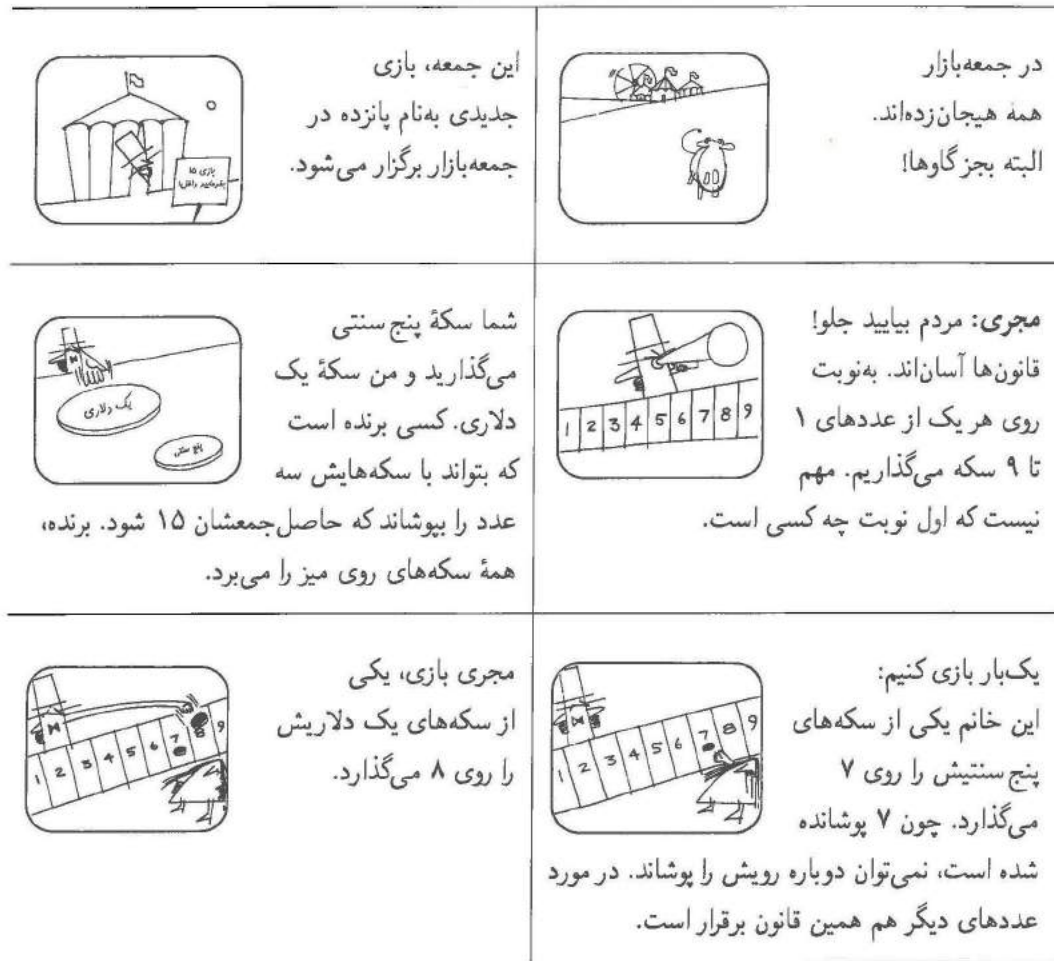 در جمعه‌بازار
همه هیجان‌زده‌اند.
البته بجز گاوها!
این جمعه، بازی
جدیدی به‌نام پانزده در
جمعه‌بازار برگزار می‌شود.
بازی ۱۵
بفرمایید داخل!
مجری: مردم بیایید جلو!
قانون‌ها آسان‌اند. به‌نوبت
روی هر یک از عددهای ۱
تا ۹ سکه می‌گذاریم. مهم
نیست که اول نوبت چه کسی است.
1 2 3 4 5 6 7 8 9
شما سکهٔ پنج سنتی
می‌گذارید و من سکهٔ یک
دلاری. کسی برنده است
که بتواند با سکه‌هایش سه
عدد را بپوشاند که حاصل‌جمعشان ۱۵ شود. برنده،
همهٔ سکه‌های روی میز را می‌برد.
یک دلاری
پنج سنتی
یک‌بار بازی کنیم:
این خانم یکی از سکه‌های
پنج سنتیش را روی ۷
می‌گذارد. چون ۷ پوشانده
شده است، نمی‌توان دوباره رویش را پوشاند. در مورد
عددهای دیگر هم همین قانون برقرار است.
1 2 3 4 5 6 7 8 9
مجری بازی، یکی
از سکه‌های یک دلاریش
را روی ۸ می‌گذارد.
1 2 3 4 5 6 7 8 9